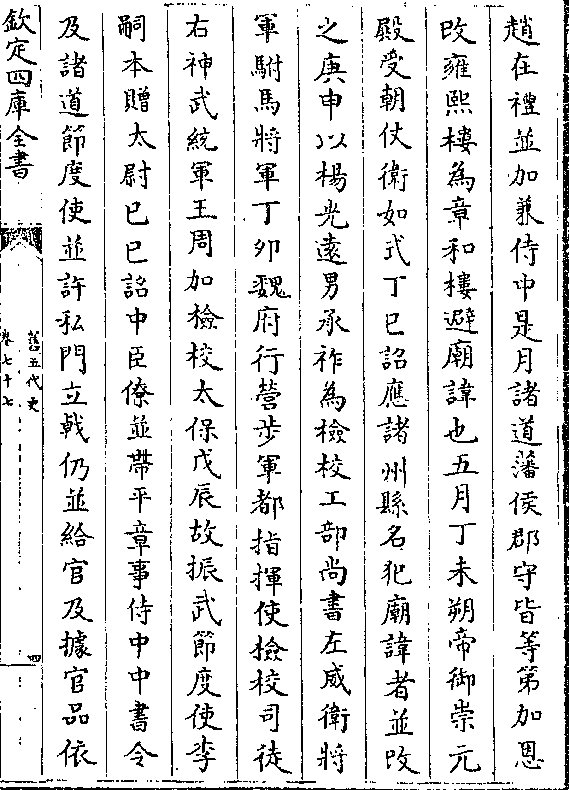 趙在禮並加兼侍中是月諸道藩侯郡守皆等第加恩
改雍熙樓為章和樓避廟諱也五月丁未朔帝御崇元
殿受朝仗衛如式丁巳詔應諸州縣名犯廟諱者並改
之庚申以楊光遠男承祚為檢校工部尚書左威衛將
軍駙馬將軍丁卯魏府行營步軍都指揮使檢校司徒
右神武統軍王周加檢校太保戊辰故振武節度使李
嗣本贈太尉己巳詔中臣僚並帶平章事侍中中書令
及諸道節度使並許私門立戟仍並給官及據官品依
欽定四庫全書
舊五代史
卷七十七
四